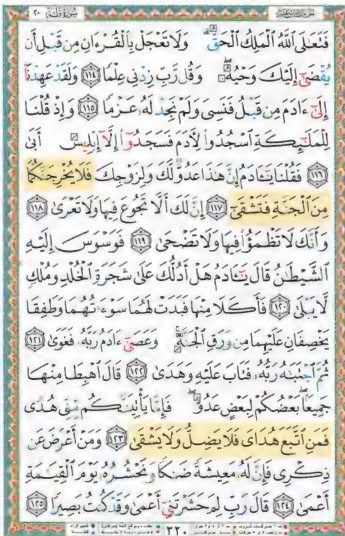 سُورَةُ طه ٢٠
فَتَعَٰلَى ٱللَّهُ ٱلْمَلِكُ ٱلْحَقُّ ۗ وَلَا تَعْجَلْ بِٱلْقُرْءَانِ مِن قَبْلِ أَن
يُقْضَىٰٓ إِلَيْكَ وَحْيُهُۥ ۖ وَقُل رَّبِّ زِدْنِى عِلْمًا ﴿١١٤﴾ وَلَقَدْ عَهِدْنَآ
إِلَىٰٓ ءَادَمَ مِن قَبْلُ فَنَسِىَ وَلَمْ نَجِدْ لَهُۥ عَزْمًا ﴿١١٥﴾ وَإِذْ قُلْنَا
لِلْمَلَٰٓئِكَةِ ٱسْجُدُوا۟ لِءَادَمَ فَسَجَدُوٓا۟ إِلَّآ إِبْلِيسَ أَبَىٰ
﴿١١٦﴾ فَقُلْنَا يَٰٓـَٔادَمُ إِنَّ هَٰذَا عَدُوٌّ لَّكَ وَلِزَوْجِكَ فَلَا يُخْرِجَنَّكُمَا
مِنَ ٱلْجَنَّةِ فَتَشْقَىٰٓ ﴿١١٧﴾ إِنَّ لَكَ أَلَّا تَجُوعَ فِيهَا وَلَا تَعْرَىٰ ﴿١١٨﴾
وَأَنَّكَ لَا تَظْمَؤُا۟ فِيهَا وَلَا تَضْحَىٰ ﴿١١٩﴾ فَوَسْوَسَ إِلَيْهِ
ٱلشَّيْطَٰنُ قَالَ يَٰٓـَٔادَمُ هَلْ أَدُلُّكَ عَلَىٰ شَجَرَةِ ٱلْخُلْدِ وَمُلْكٍ
لَّا يَبْلَىٰ ﴿١٢٠﴾ فَأَكَلَا مِنْهَا فَبَدَتْ لَهُمَا سَوْءَٰتُهُمَا وَطَفِقَا
يَخْصِفَانِ عَلَيْهِمَا مِن وَرَقِ ٱلْجَنَّةِ ۚ وَعَصَىٰٓ ءَادَمُ رَبَّهُۥ فَغَوَىٰ ﴿١٢١﴾
ثُمَّ ٱجْتَبَٰهُ رَبُّهُۥ فَتَابَ عَلَيْهِ وَهَدَىٰ ﴿١٢٢﴾ قَالَ ٱهْبِطَا مِنْهَا
جَمِيعًۢا ۖ بَعْضُكُمْ لِبَعْضٍ عَدُوٌّ ۖ فَإِمَّا يَأْتِيَنَّكُم مِّنِّى هُدًى
فَمَنِ ٱتَّبَعَ هُدَاىَ فَلَا يَضِلُّ وَلَا يَشْقَىٰ ﴿١٢٣﴾ وَمَنْ أَعْرَضَ عَن
ذِكْرِى فَإِنَّ لَهُۥ مَعِيشَةً ضَنكًا وَنَحْشُرُهُۥ يَوْمَ ٱلْقِيَٰمَةِ
أَعْمَىٰ ﴿١٢٤﴾ قَالَ رَبِّ لِمَ حَشَرْتَنِىٓ أَعْمَىٰ وَقَدْ كُنتُ بَصِيرًا ﴿١٢٥﴾
٣٢٠